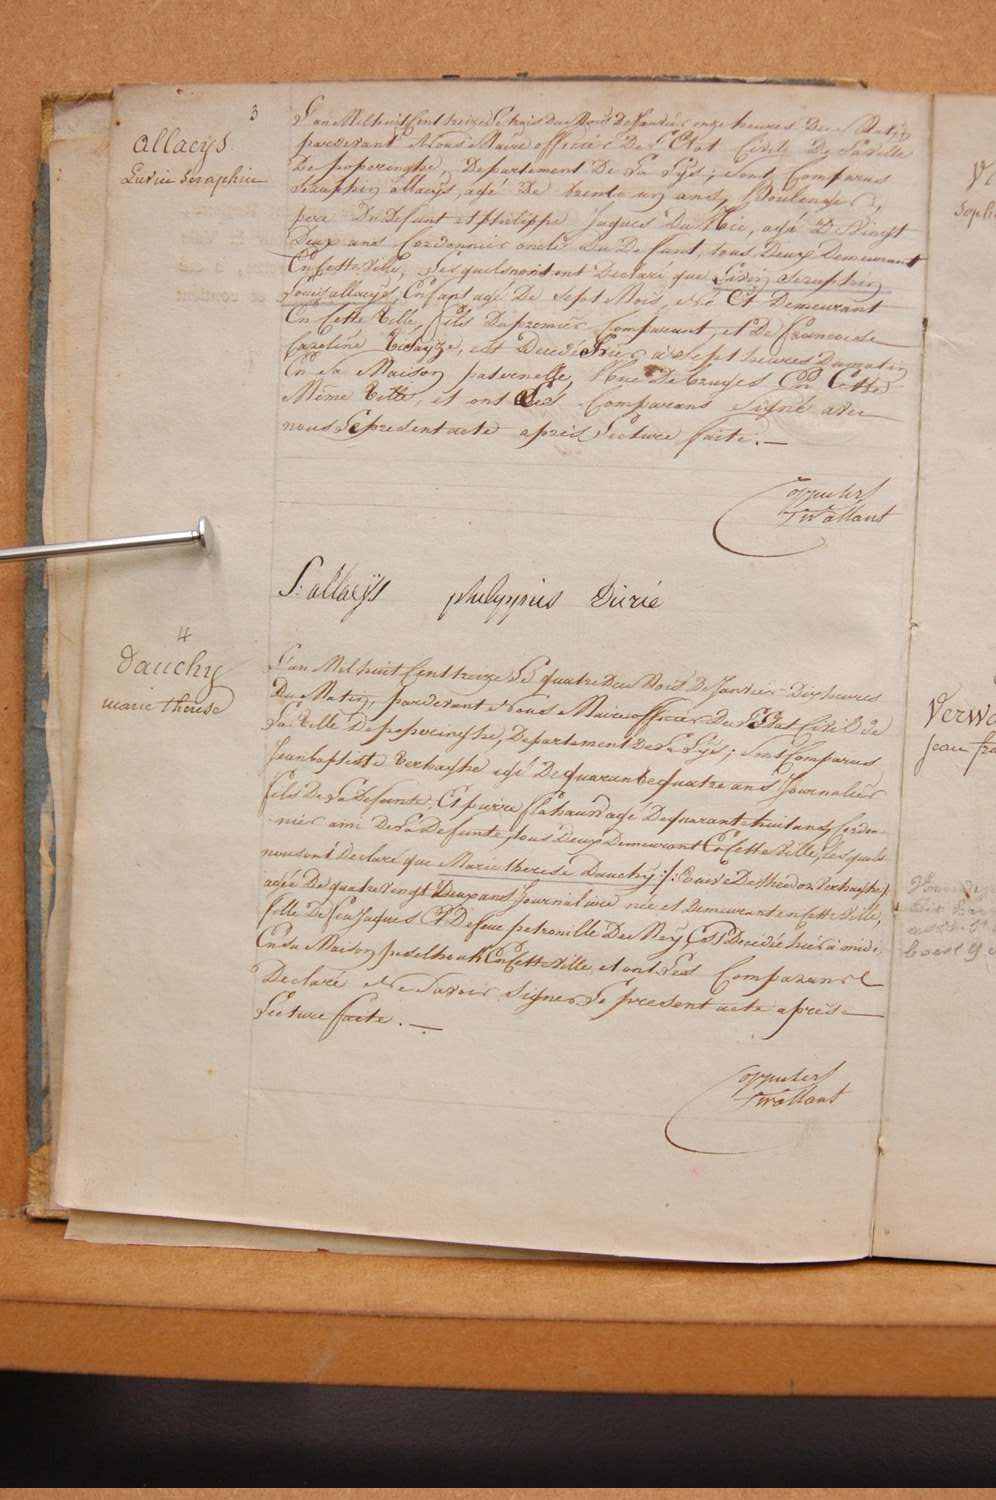 3
allaeÿs
Livin Seraphin
L'an Mil huit Cent treize Le trois du Mois De Janvier onze heures Du Matin
pardevant Nous Maire officier De L'Etat Civile De La Ville
De poperinghe, Departement De La Lÿs; sont Comparus
Seraphin allaeÿs, agé De trente un ans, Boulenger,
pere Du Defunt et philippe Jaques Du agé De Vingt
Deux ans Cordonnier oncle Du Defunt, tous Deux Demeurant
En Cette Ville, Lesquels nous ont Declaré que Livin Seraphin
Louis allaeÿs Enfant agé De Sept Mois, né Et Demeurant
En Cette Ville, fils Du premier Comparant, et De francoise
Caroline est Decedé hier à Sept heures Du matin
En Sa Maison paternelle, Rue De bruges En Cette
Même Ville, et ont Les Comparans Signé avec
nous Le present acte après Lecture faite. —
S: allaeÿs
4
Dauchy
marie therese
L'an Mil huit Cent treize Le quatre Du Mois De Janvier Dix heures
Du Matin, pardevant Nous Maire officier De L'Etat Civil De
La Ville De poperinghe, Departement De La Lÿs; Sont Comparus
Jean baptiste Verhaeghe agé De quarante quatre ans Journalier
fils De La Defunte, Et pierre flahaun agé De quarante huit ans Cordon-
-nier ami De La Defunte, tous Deux Demeurant En Cette Ville, Lesquels
nous ont Declaré que Marie therese Dauchy /: Veuve De theodor Verhaeghe :/
agée De quatre vingt Deux ans Journaliere née et Demeurant en Cette Ville,
fille De feu Jaques Et De feue petronille De Neÿ Est Decedée hier a midi
En Sa Maison En Cette Ville, et ont Les Comparans
Declaré Ne Savoir Signer Le present acte après
Lecture faite. —
Verwa
jean fra